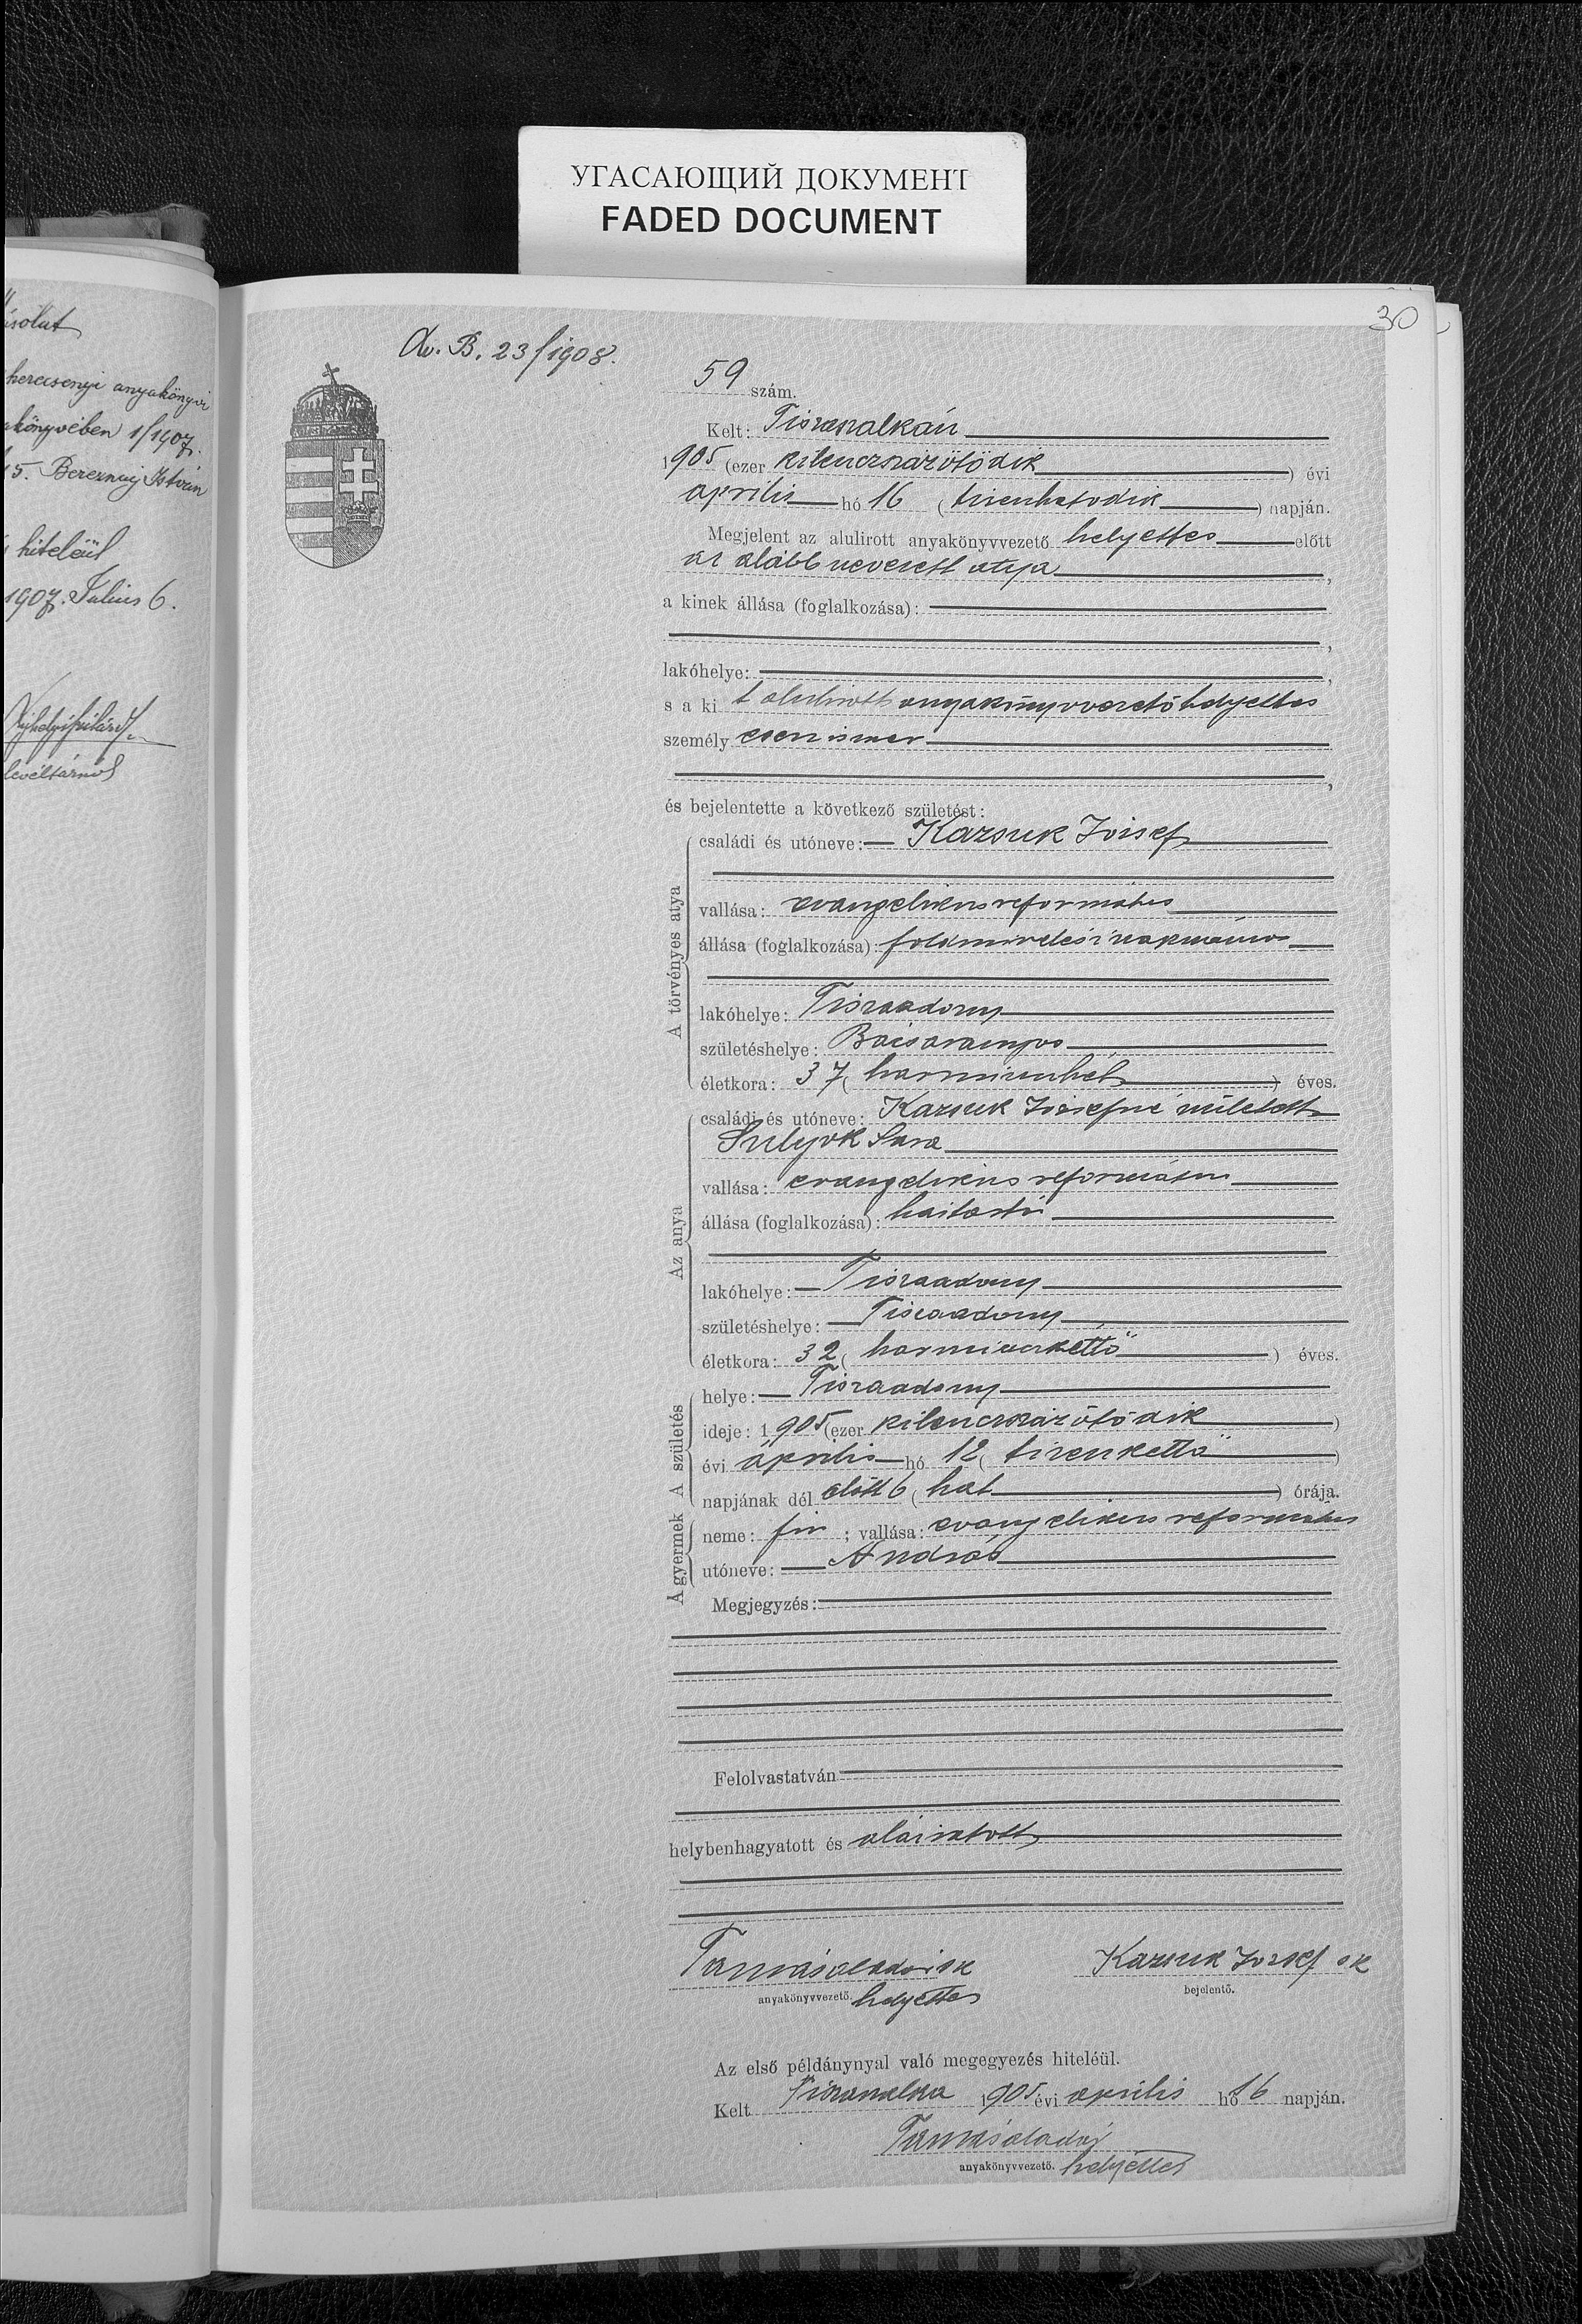 УГАСАЮЩИЙ ДОКУМЕНТ
FADED DOCUMENT
30
hercsenyi anyakönyvi
akönyvében 1/1907.
15. Bereznay István
hiteléül
1907. Julius 6.
levéltárnok
B. 23/1908.
59 szám.
Kelt: Tiszaszalkán
1905 (ezer kilenczszázötödik ) évi
április hó 16 ( tizenhatodik ) napján.
Megjelent az alulirott anyakönyvvezető helyettes előtt
az alább nevezett atya ,
a kinek állása (foglalkozása):
,
lakóhelye: ,
s a ki t alulirott anyakönyvvezető helyettes
személy esen ismer
,
és bejelentette a következő születést:
A törvényes atya
családi és utóneve: Kazsuk József
vallása: evangelikus református
állása (foglalkozása): földmivelési
lakóhelye: Tiszaadony
születéshelye:
életkora: 37 ( harminczhét ) éves.
Az anya
családi és utóneve: Kazsuk Józsefné született
Sulyok Sara
vallása: evangelikus református
állása (foglalkozása):
lakóhelye: Tiszaadony
születéshelye: Tiszaadony
életkora: 32 ( harminczkettő ) éves.
A születés
helye: Tiszaadony
ideje: 1905 (ezer kilenczszázötödik )
évi április hó 12 ( tizenkettő )
napjának dél előtt 6 ( hat ) órája.
A gyermek
neme: fiu ; vallása: evangelikus református
utóneve: András
Megjegyzés:
Felolvastatván
helybenhagyatott és aláiratott
Tamás Aladár sk
Kazsuk József sk
anyakönyvvezető. helyettes
bejelentő.
Az első példánynyal való megegyezés hiteléül.
Kelt Tiszaszalka 1905 évi április hó 16 napján.
Tamás Aladár
anyakönyvvezető. helyettes